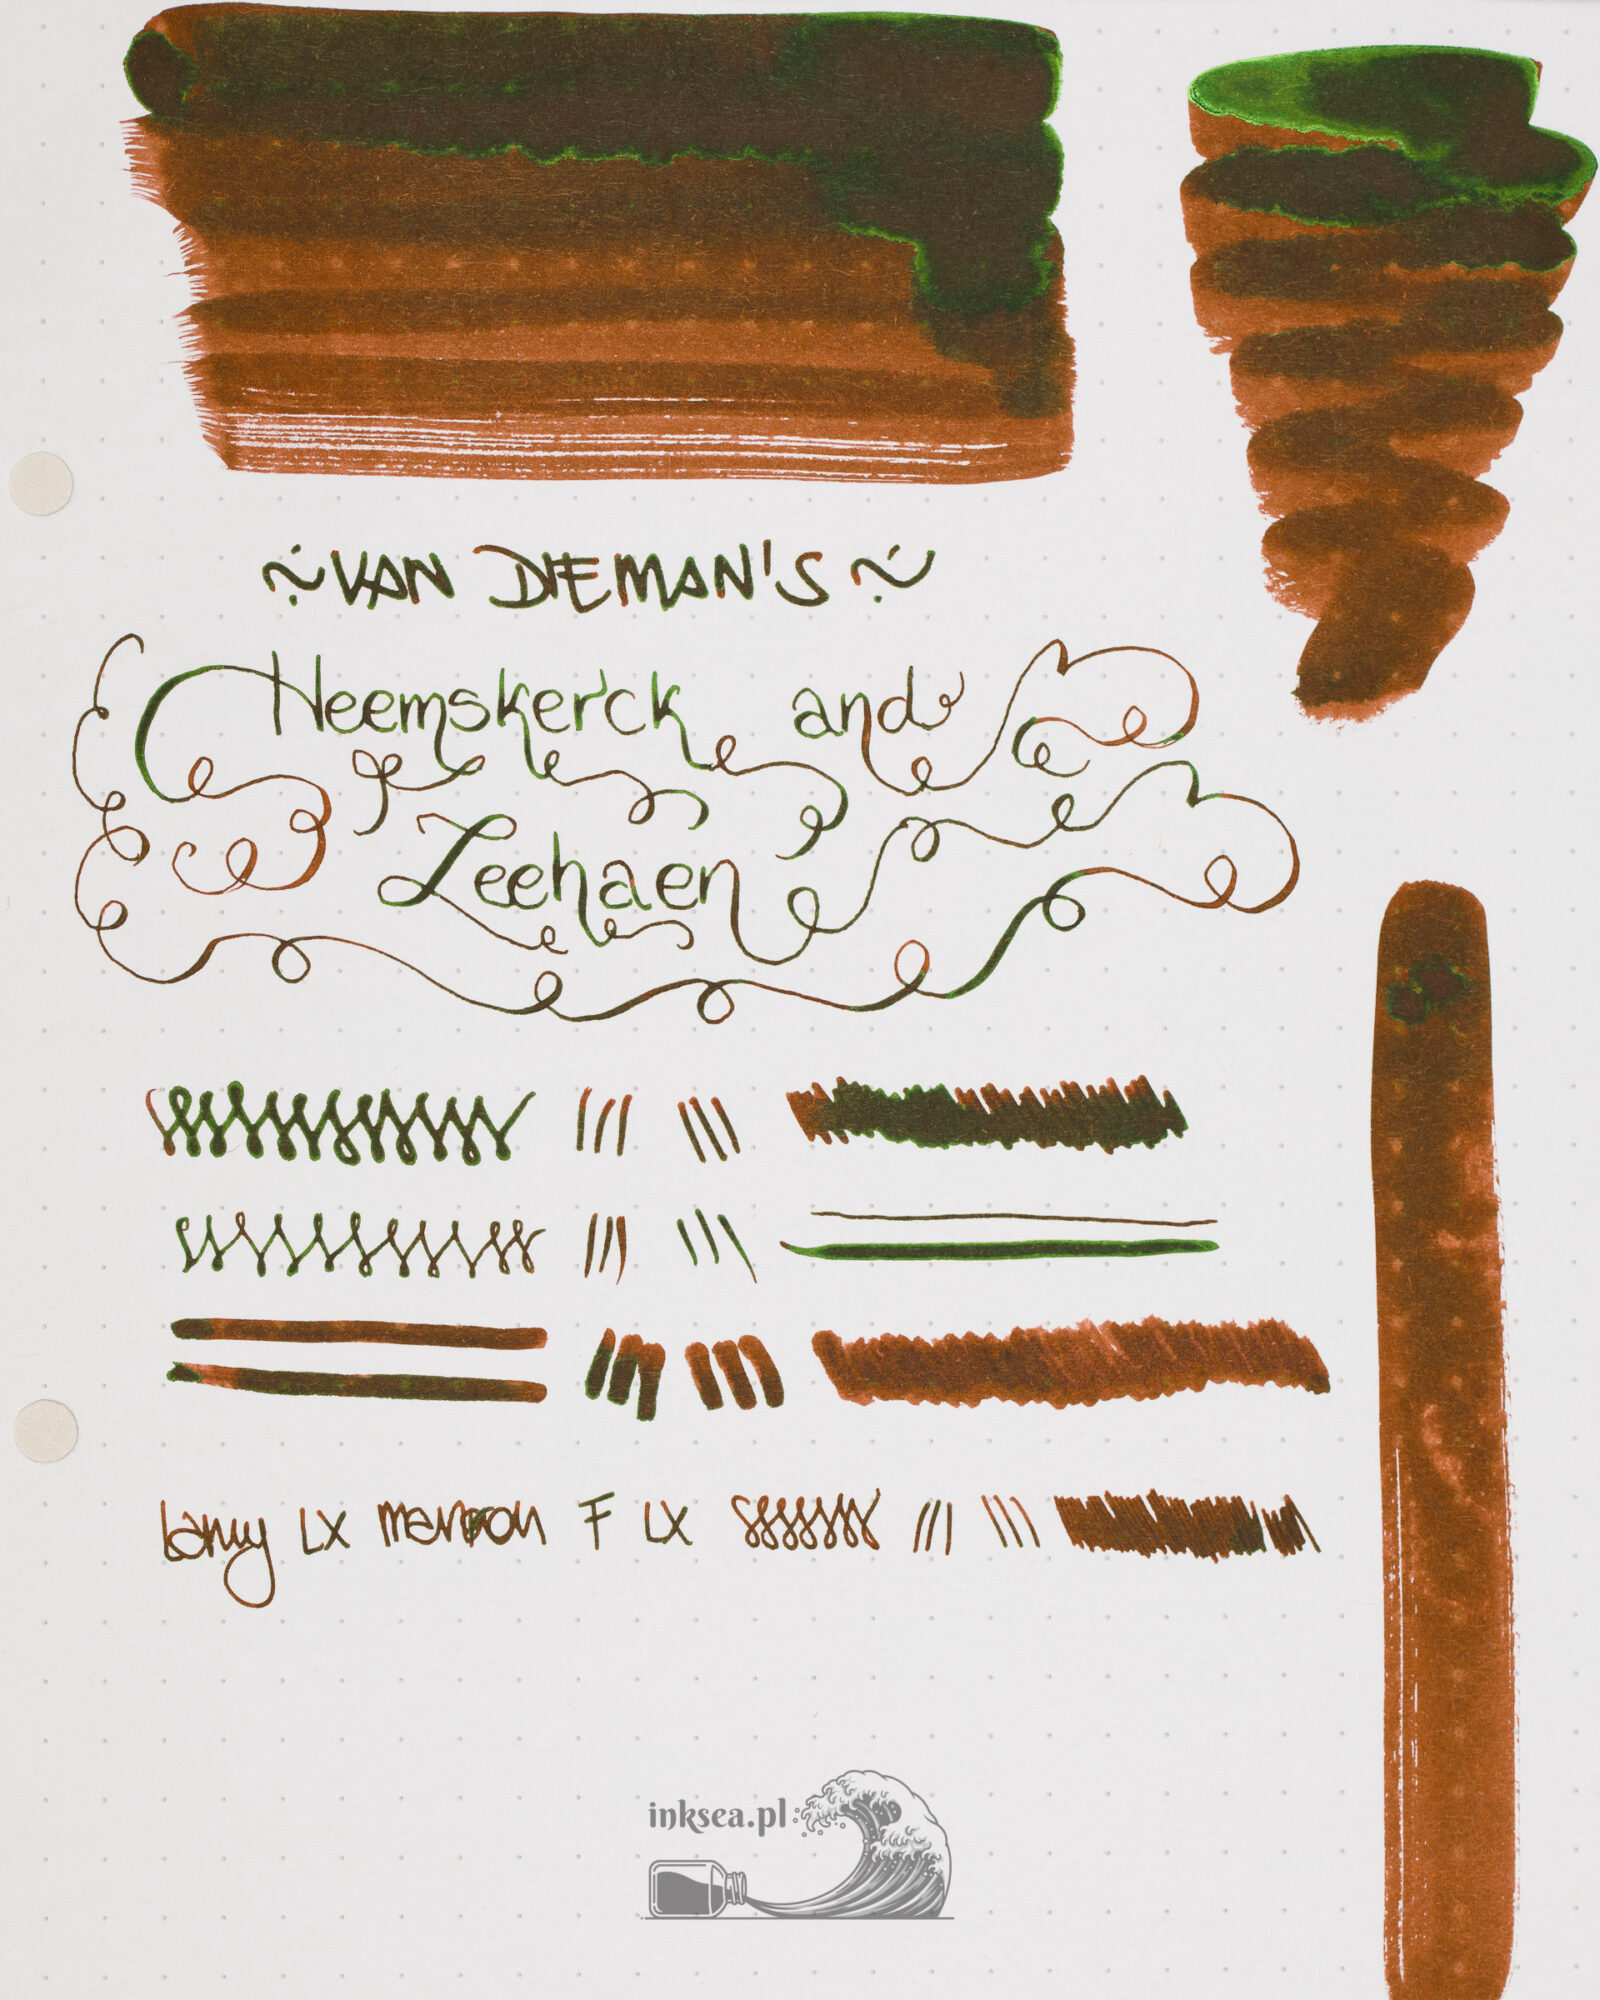 ~ VAN DIEMAN'S ~
Heemskerck and
Zeehaen
Lamy LX marron F LX
inksea.pl